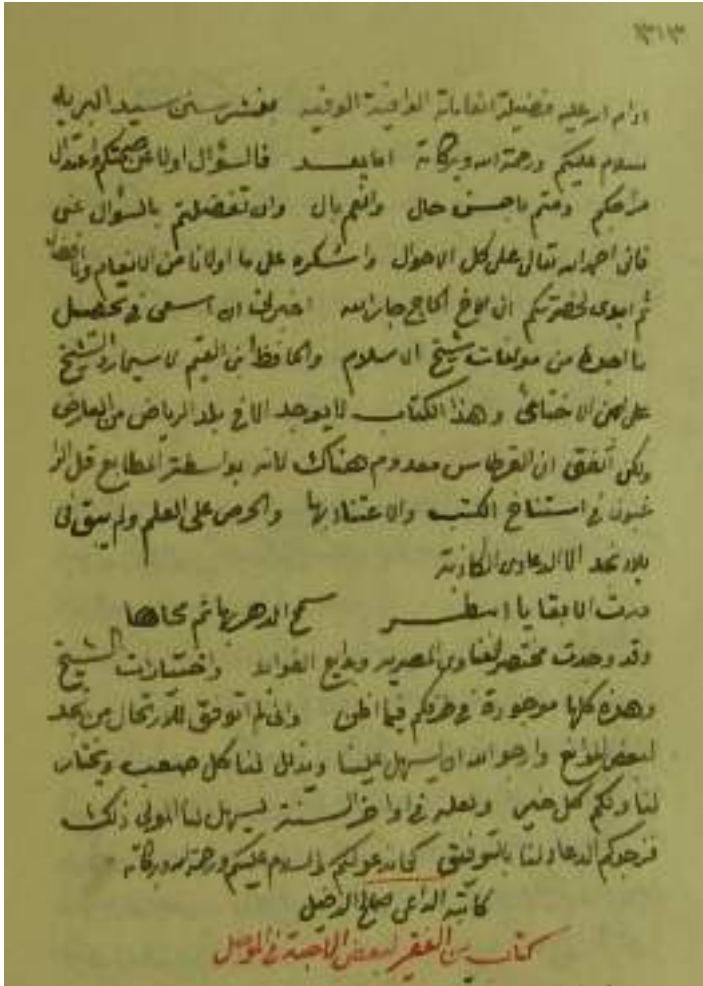 ١٣١٣
ادام الله عليه فضيلة انعاماته الوافية الوفيه بنشر سنن سيد البريه
سلام عليكم ورحمة الله وبركاته اما بعد فالسؤال اولا عن صحتكم واعتدال
مزاجكم دمتم باحسن حال وانعم بال وان تفضلتم بالسؤال عنى
فانى احمد الله تعالى على كل الاحوال واشكره على ما اولانا من الانعام والافضال
ثم ابدى لحضرتكم ان الاخ الحاج جار الله اخبرنا ان اسعى فى تحصيل
ما اجده من مولفات شيخ الاسلام والحافظ ابن القيم لا سيما رد الشيخ
على الاخنائى وهذا الكتاب لا يوجد الا فى بلد الرياض من العارض
ولكن اتفق ان القرطاس معدوم هناك لانه بواسطة المطابع قل الر
غبون فى استنساخ الكتب والاعتناء بها والحرص على العلم ولم يبق فى
بلاد نجد الا الدعاوى الكاذبة
درت الا بقايا اسطر سمح الدهر بها ثم محاها
وقد وجدت مختصر الفتاوى المصريه وبدايع الفوائد واختيارات الشيخ
وهذه كلها موجودة فى طرفكم فيما اظن وانى لم اتوفق للارتحال من نجد
لبعض الموانع وارجو الله ان يسهل علينا ويذلل لنا كل صعب ويختار
لنا ولكم كل خير ولعله فى اواخر السنة يسهل لنا المولى ذلك
فنرجوكم الدعاء لنا بالتوفيق كما ندعو لكم والسلام عليكم ورحمة الله وبركاته
كاتبه الداعى صالح الدخيل
كتاب من الفقير لبعض الاحبة فى الموصل